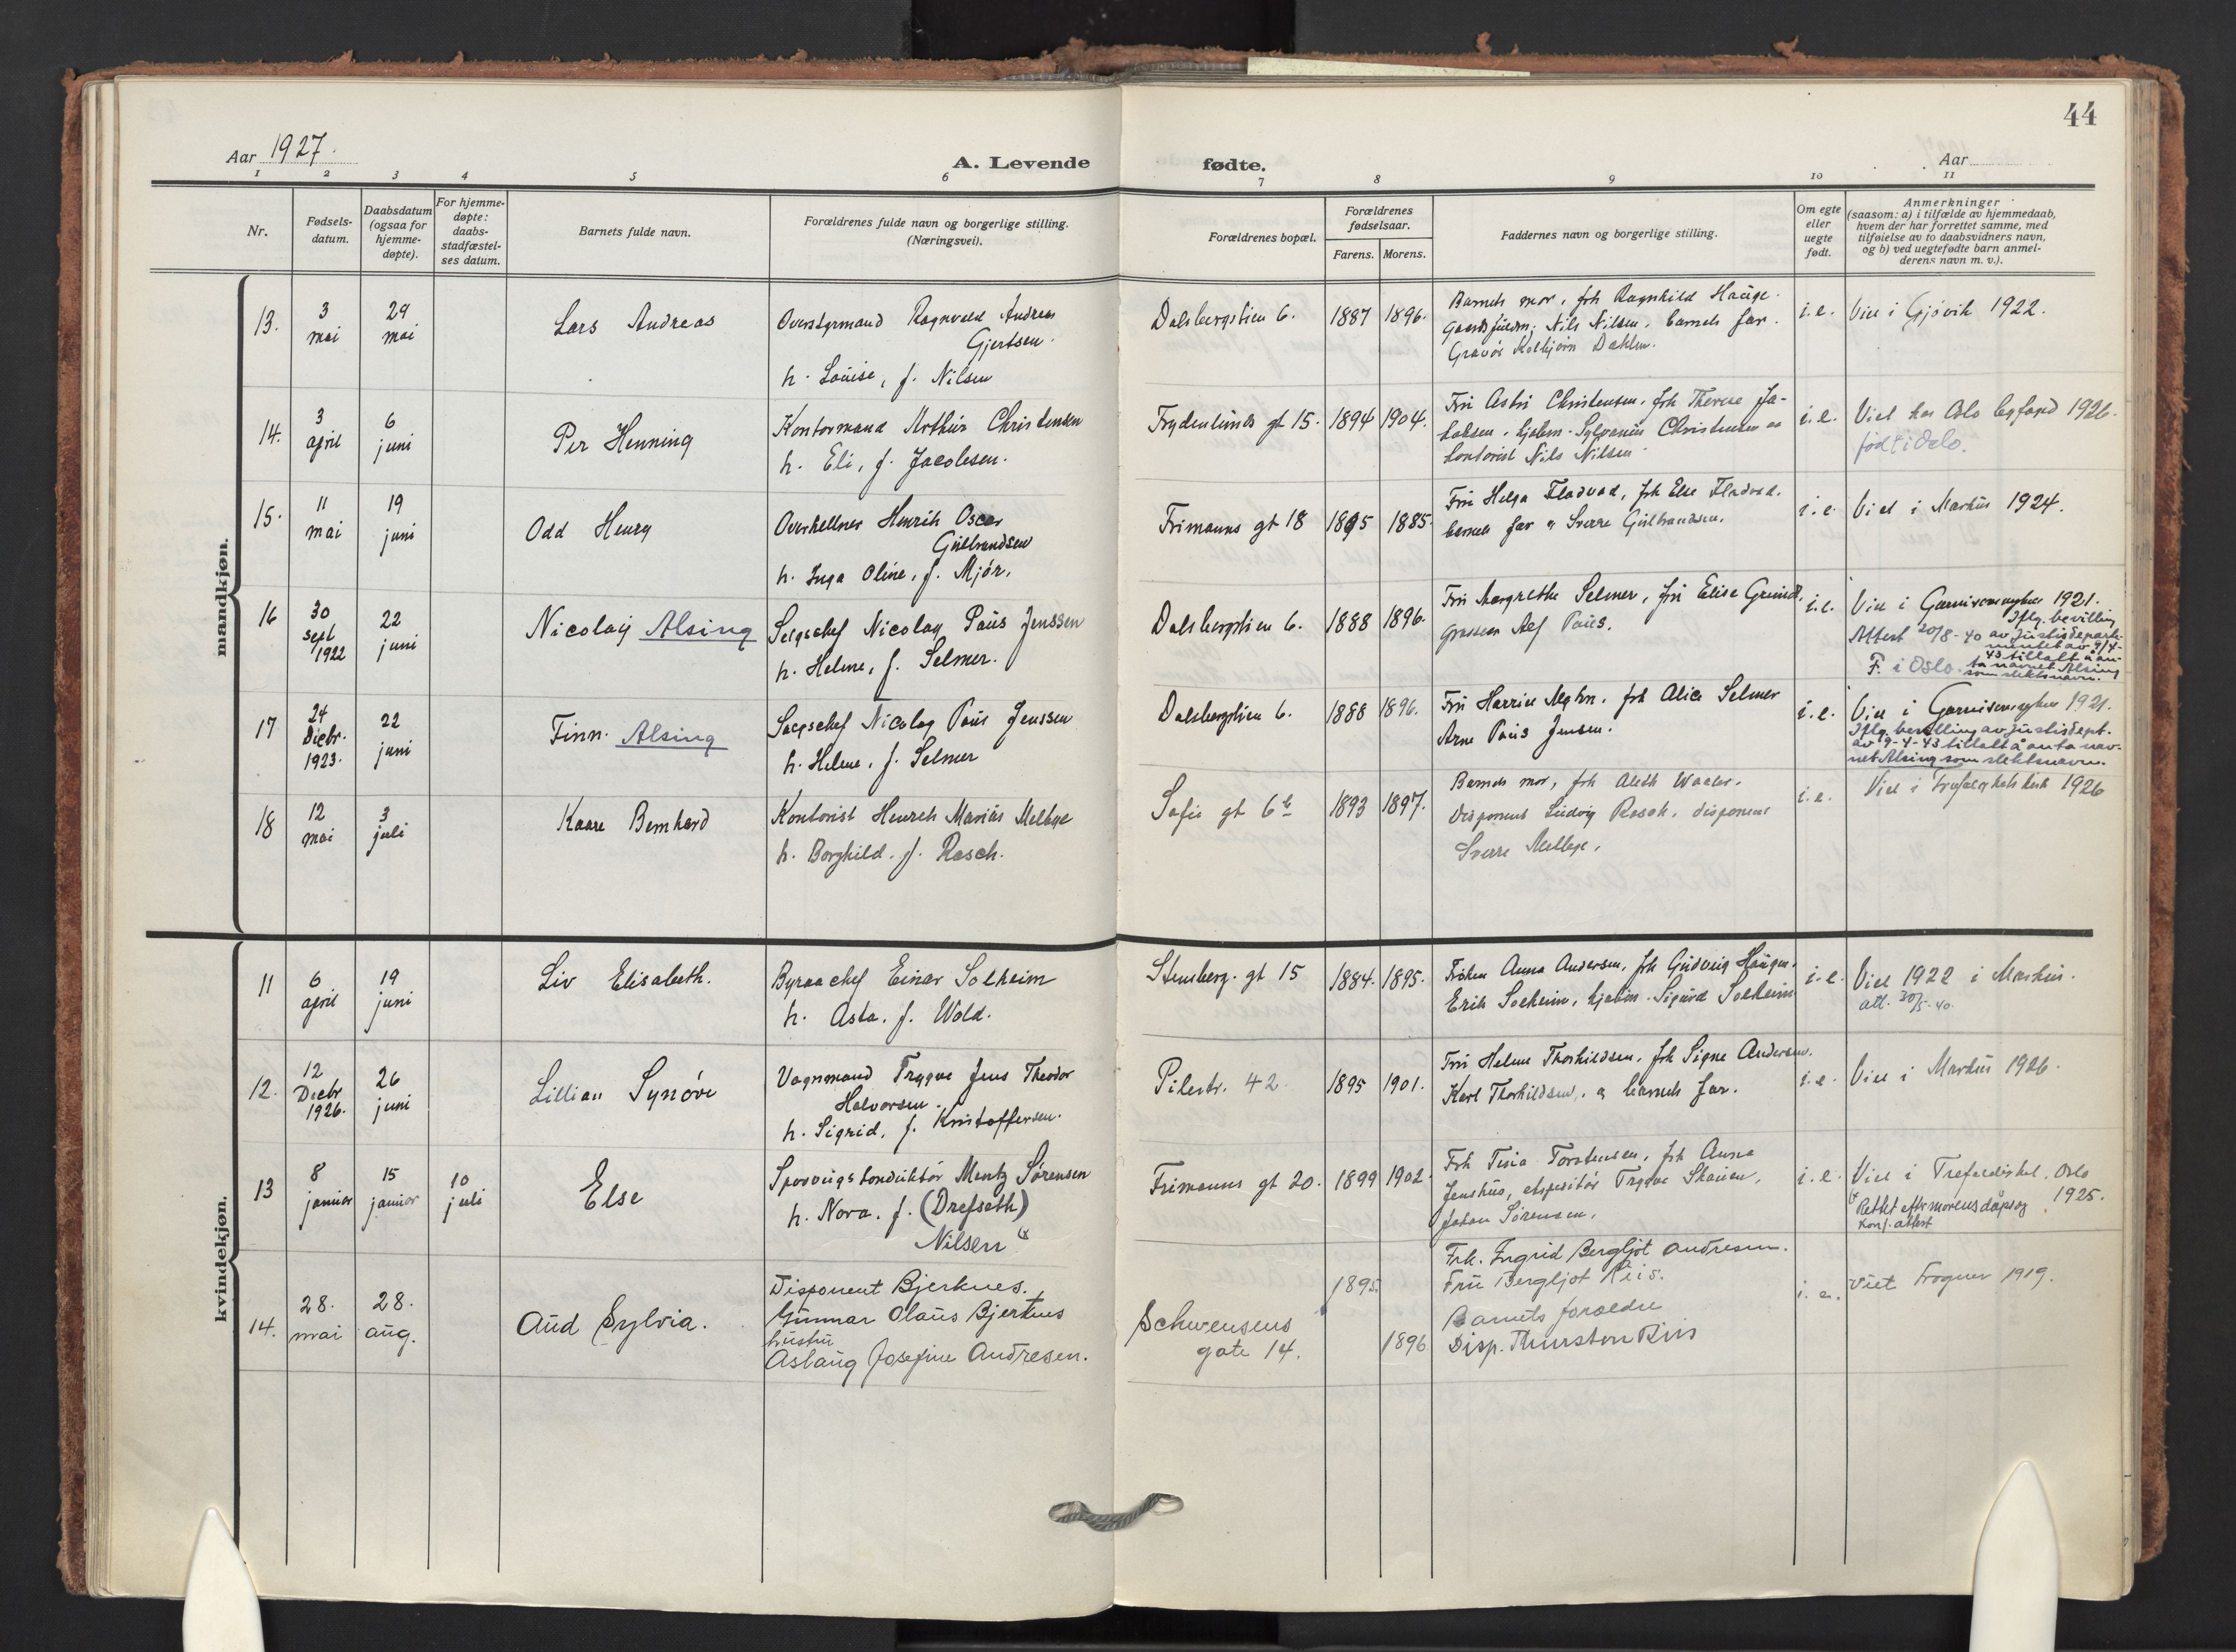 44
Aar 1927.
A. Levende
fødte.
Aar
1 2 3 4 5 6 7 8 9 10 11
Nr.
Fødsels-
datum.
Daabsdatum
(ogsaa for
hjemme-
døpte).
For hjemme-
døpte:
daabs-
stadfæstel-
ses datum.
Barnets fulde navn.
Forældrenes fulde navn og borgerlige stilling.
(Næringsvei).
Forældrenes bopæl.
Forældrenes
fødselsaar.
Farens. Morens.
Faddernes navn og borgerlige stilling.
Om egte
eller
uegte
født.
Anmerkninger
(saasom: a) i tilfælde av hjemmedaab,
hvem der har forrettet samme, med
tilføielse av to daabsvidners navn,
og b) ved uegtefødte barn anmel-
derens navn m. v.).
mandkjøn.
13.
3
mai
29
mai
Lars Andreas
Overstyrmand Ragnvald Andreas
Gjertsen.
h. Louise, f. Nilsen
Dalsbergstien 6.
1887 1896.
Barnets mor, frk Ragnhild Hauge.
Nils Nilsen, barnets far.
Gravør Kolbjørn Dahlen.
i.e.
Viet i Gjøvik 1922.
14.
3
april
6
juni
Per Henning
Kontormand Arthur Christensen
h. Eli, f. Jacobsen.
Frydenlunds gt 15.
1894 1904.
Fru Astri Christensen, frk Therese Ja-
kobsen, Sylvanus Christensen og
kontorist Nils Nilsen
i.e.
Viet hos Oslo byfogd 1926.
født i Oslo.
15.
11
mai
19
juni
Odd Henry
Overkellner Henrik Oscar
Gulbrandsen
h. Inga Oline, f. Mjør.
Frimanns gt 18
1895 1885.
Fru Helga Fladvad, frk Else Fladvad.
barnets far og Sverre Gulbrandsen.
i.e.
Viet i Markus 1924.
16
30
sept
1922
22
juni
Nicolay Alsing
Salgschef Nicolay Paus Jenssen
h. Helene, f. Selmer.
Dalsbergstien 6.
1888 1896.
Fru Margrethe Selmer, fru Elise
Grosserer Alf Paus.
i.e.
Viet i Garnisonsmgh 1921.
Iflg. bevilling
Attest 20/8-40 av Justisdeparte-
mentet av 9/4-
43 tillatt å an-
F. i Oslo. ta navnet Alsing
som slektsnavn.
17
24
Decbr.
1923.
22
juni
Finn. Alsing
Salgschef Nicolay Paus Jenssen
h. Helene, f. Selmer
Dalsbergstien 6.
1888 1896.
Fru Harriet, frk Alice Selmer
Arne Paus Jensen.
i.e.
Viet i 1921.
Iflg. bevilling av Justisdept.
av 9-4-43 tillatt å anta nav-
net Alsing som slektsnavn.
18
12
mai
3
juli
Kaare Bernhard
Kontorist Henrik Marius Melbye
h. Borghild, f. Rasch.
Sofies gt 6b
1893 1897.
Barnets mor, frk Aleth Waaler.
Disponent Ludvig Rasch, disponent
Sverre Melbye.
i.e.
Viet i Trefoldighets kirk 1926
kvindekjøn.
11
6
april
19
juni
Liv Elisabeth.
Byraachef Einar Solheim
h. Asta, f. Wold.
Stensberg. gt 15
1884. 1895.
Frøken Anna Andersen, frk Gudveig Haugen.
Erik Solheim, Sigurd Solheim
i.e.
Viet 1922 i Markus.
att. 20/5-40.
12.
12
Decbr
1926.
26
juni
Lillian Synøve
Vognmand Trygve Jens Theodor
Halvorsen.
h. Sigrid, f. Kristoffersen.
Pilestr. 42
1895 1901.
Fru Helene Thorkildsen, frk Signe Andersen.
Karl Thorkildsen, og barnets far.
i.e.
Viet i Markus 1926.
13
8
januar
15
januar
10
juli
Else
Sporveigskonduktør Mentz Sørensen
h. Nora, f. (Drefseth)
Nilsen (x
Frimanns gt 20.
1899 1902.
Frk Torstensen, frk Anna
Jenshus, ekspeditør Trygve Skauen,
Johan Sørensen.
i.e.
Viet i Trefoldighet. Oslo
1925.
(x Rettet efter morens dåps og
konf. attest
14.
28.
mai
28.
aug.
Aud Sylvia.
Disponent Bjerknes.
Gunnar Olaus Bjerknes
hustru
Aslaug Josefine Andresen.
Schwensens
gate 14.
1895.
1896
Frk. Ingrid Bergljot Andresen.
Fru Bergljot Riis.
Barnets foreldre
Disp. Thurston Riis
i. e.
Viet Frogner 1919.